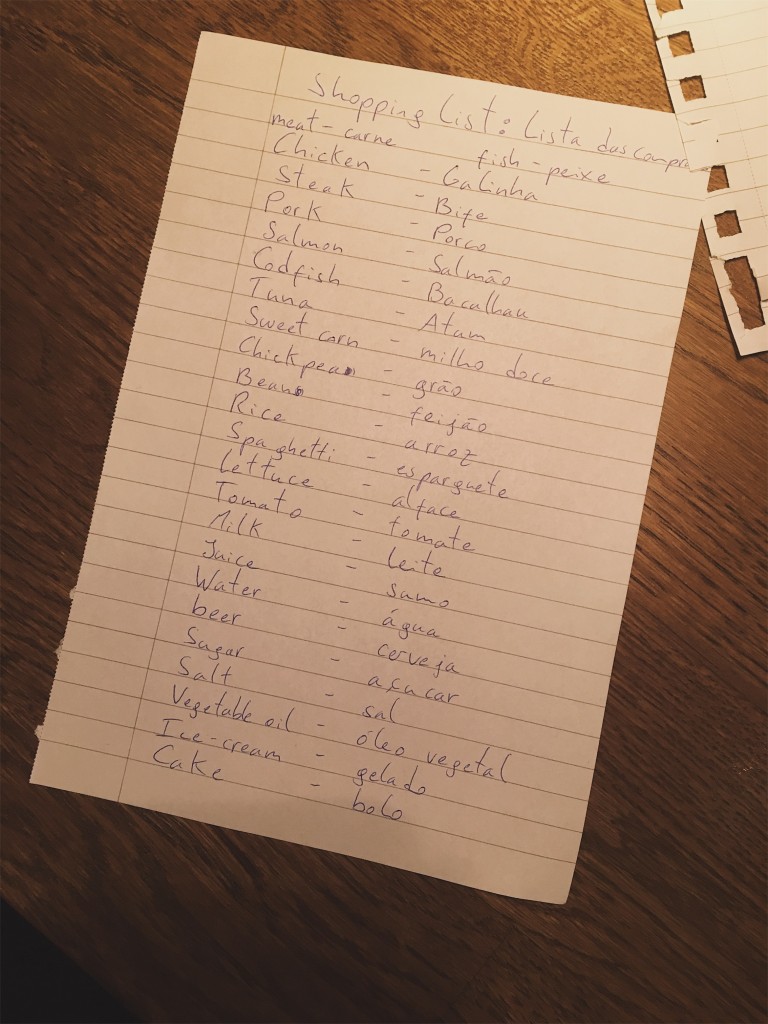 Shopping List: Lista das compras
meat - carne fish - peixe
Chicken - Galinha
Steak - Bife
Pork - Porco
Salmon - Salmão
Codfish - Bacalhau
Tuna - Atum
Sweet corn - milho doce
Chickpeas - grão
Beans - feijão
Rice - arroz
Spaghetti - esparguete
Lettuce - alface
Tomato - tomate
Milk - leite
Juice - sumo
Water - água
beer - cerveja
Sugar - açucar
Salt - sal
Vegetable oil - óleo vegetal
Ice-cream - gelado
Cake - bolo